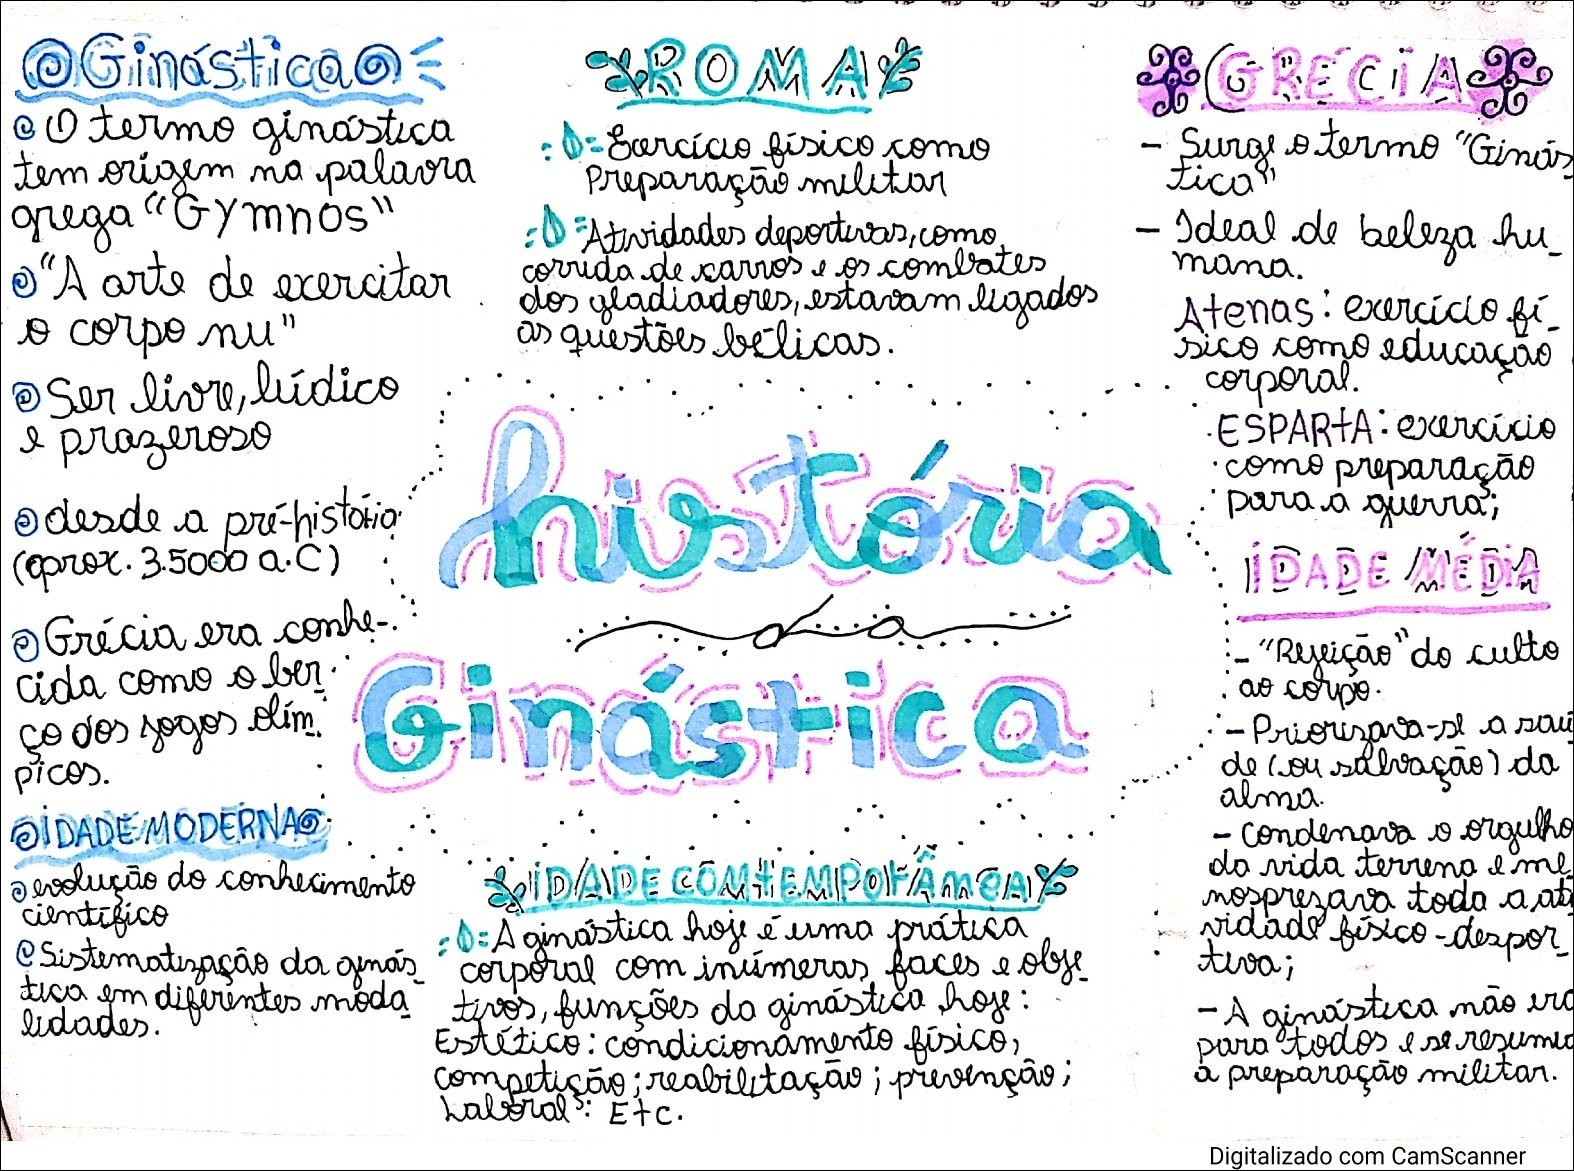 Ginástica
O termo ginástica
tem origem na palavra
grega "Gymnos"
"A arte de exercitar
o corpo nu"
Ser livre, lúdico
e prazeroso
desde a pré-história
(aprox. 3.5000 a.C)
Grécia era conhe-
cida como o ber-
ço dos jogos olím-
picos.
IDADE MODERNA
evolução do conhecimento
científico
Sistematização da ginás-
tica em diferentes moda-
lidades.
ROMA
Exercício físico como
preparação militar
Atividades deportivas, como
corrida de carros e os combates
dos gladiadores, estavam ligados
às questões bélicas.
história
da
Ginástica
IDADE COMTEMPORÂNEA
A ginástica hoje é uma prática
corporal com inúmeras faces e obje-
tivos, funções da ginástica hoje:
Estético: condicionamento físico,
competição; reabilitação; prevenção;
Laboral: Etc.
GRÉCIA
- Surge o termo "Ginás
tica"
- Ideal de beleza hu-
mana.
Atenas: exercício fí-
sico como educação
corporal.
ESPARTA: exercício
como preparação
para a guerra;
IDADE MÉDIA
- "Rejeição" do culto
ao corpo.
- Priorizava-se a saú
de (ou salvação) da
alma.
- Condenava o orgulho
da vida terrena e me
nosprezava toda a ati
vidade físico-despor-
tiva;
- A ginástica não era
para todos e se resumia
a preparação militar.
Digitalizado com CamScanner